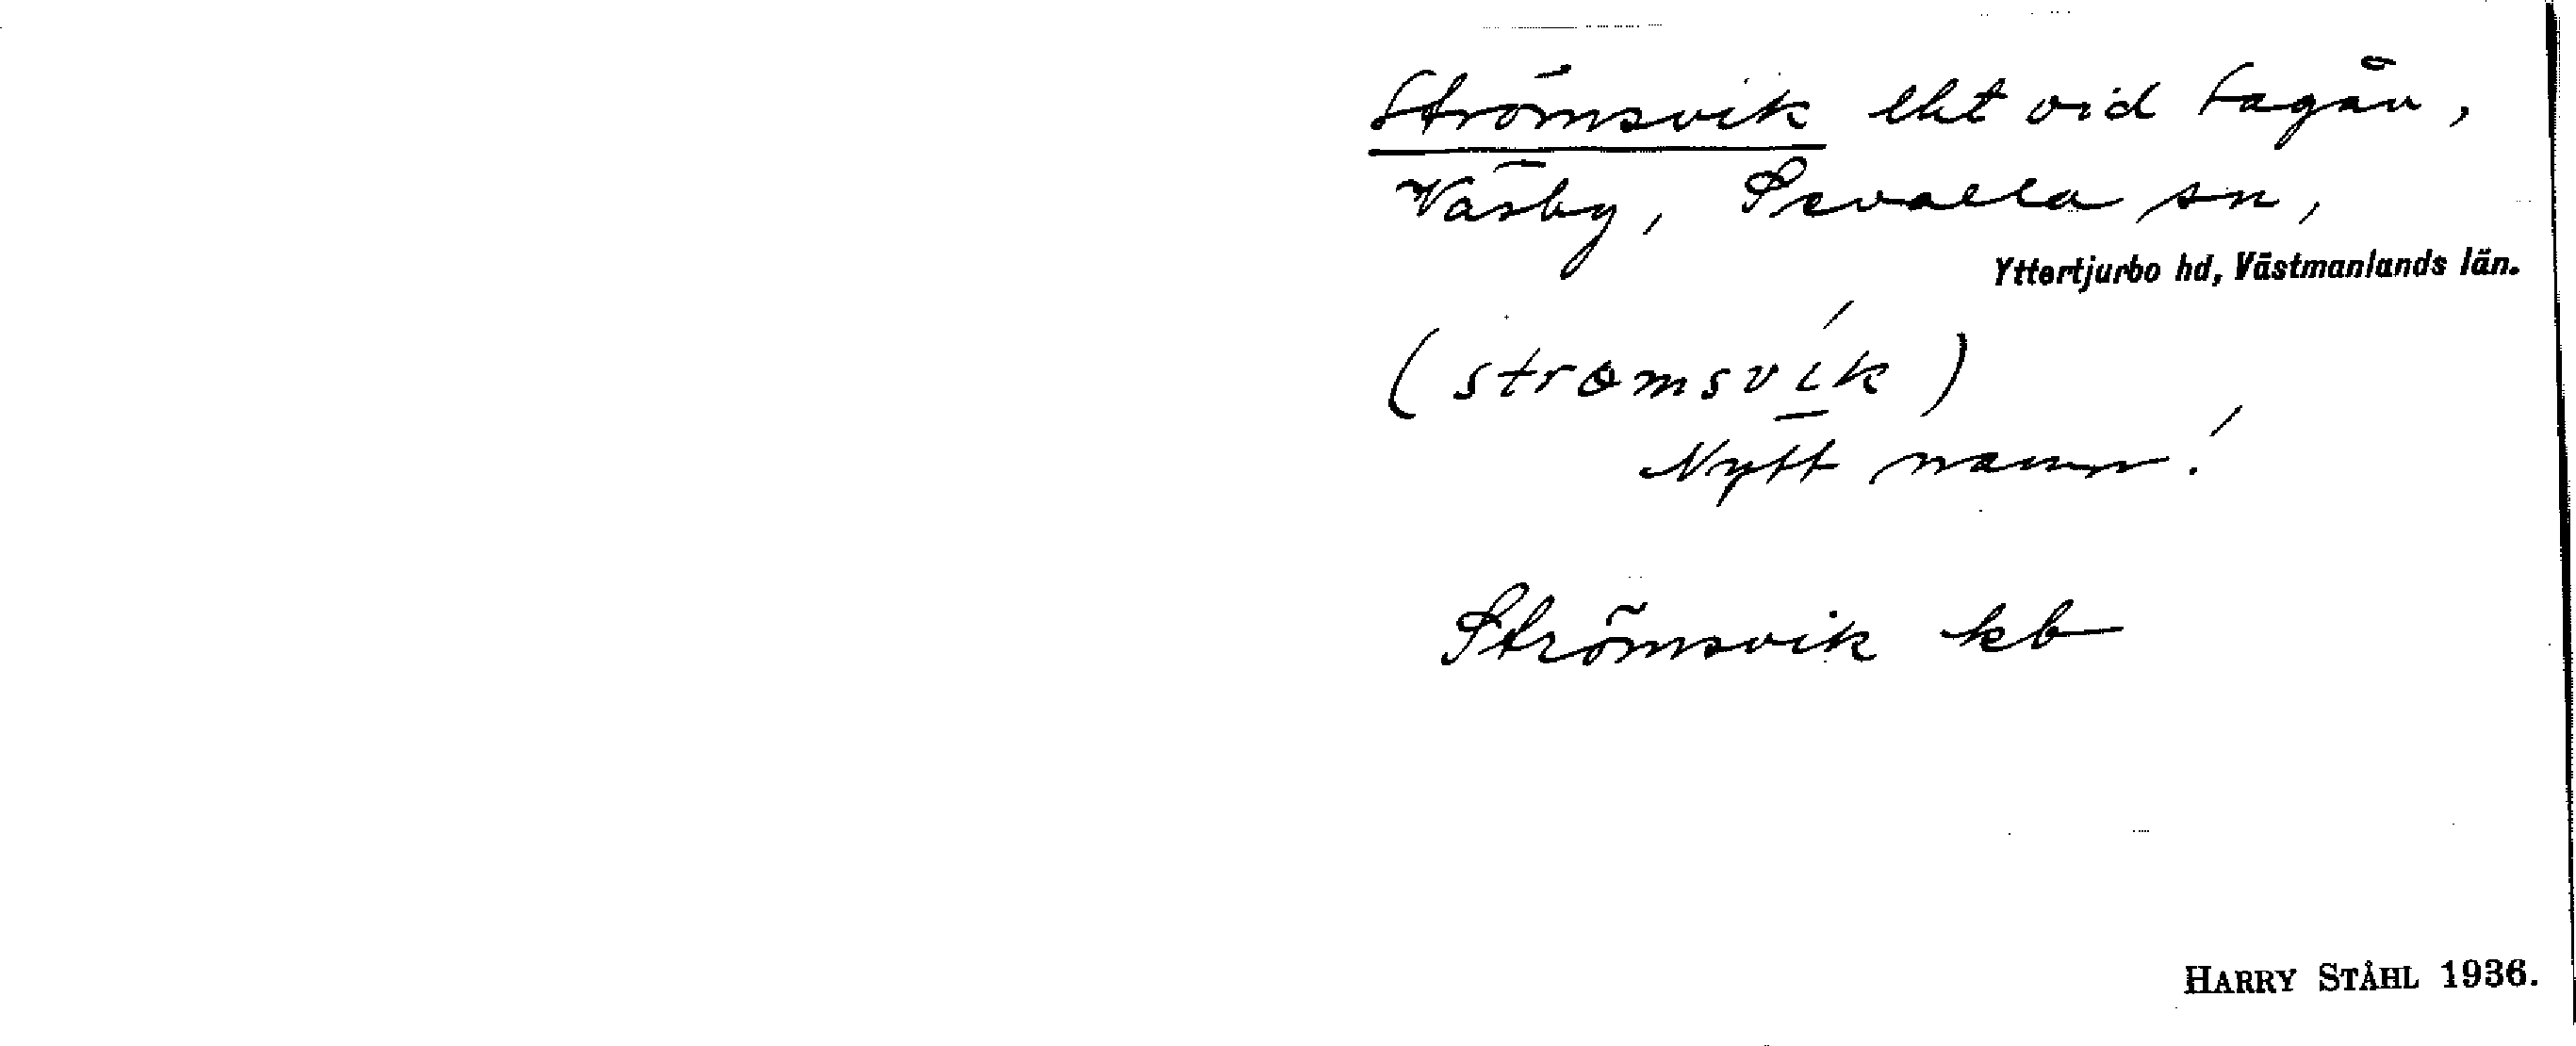 Strömsvik lht vid Lagån,
Väsby, Sevalla sn,
Yttertjurbo hd, Västmanlands län.
(strømsvík)
Nytt namn!
Strömsvik kb
HARRY STÅHL 1936.